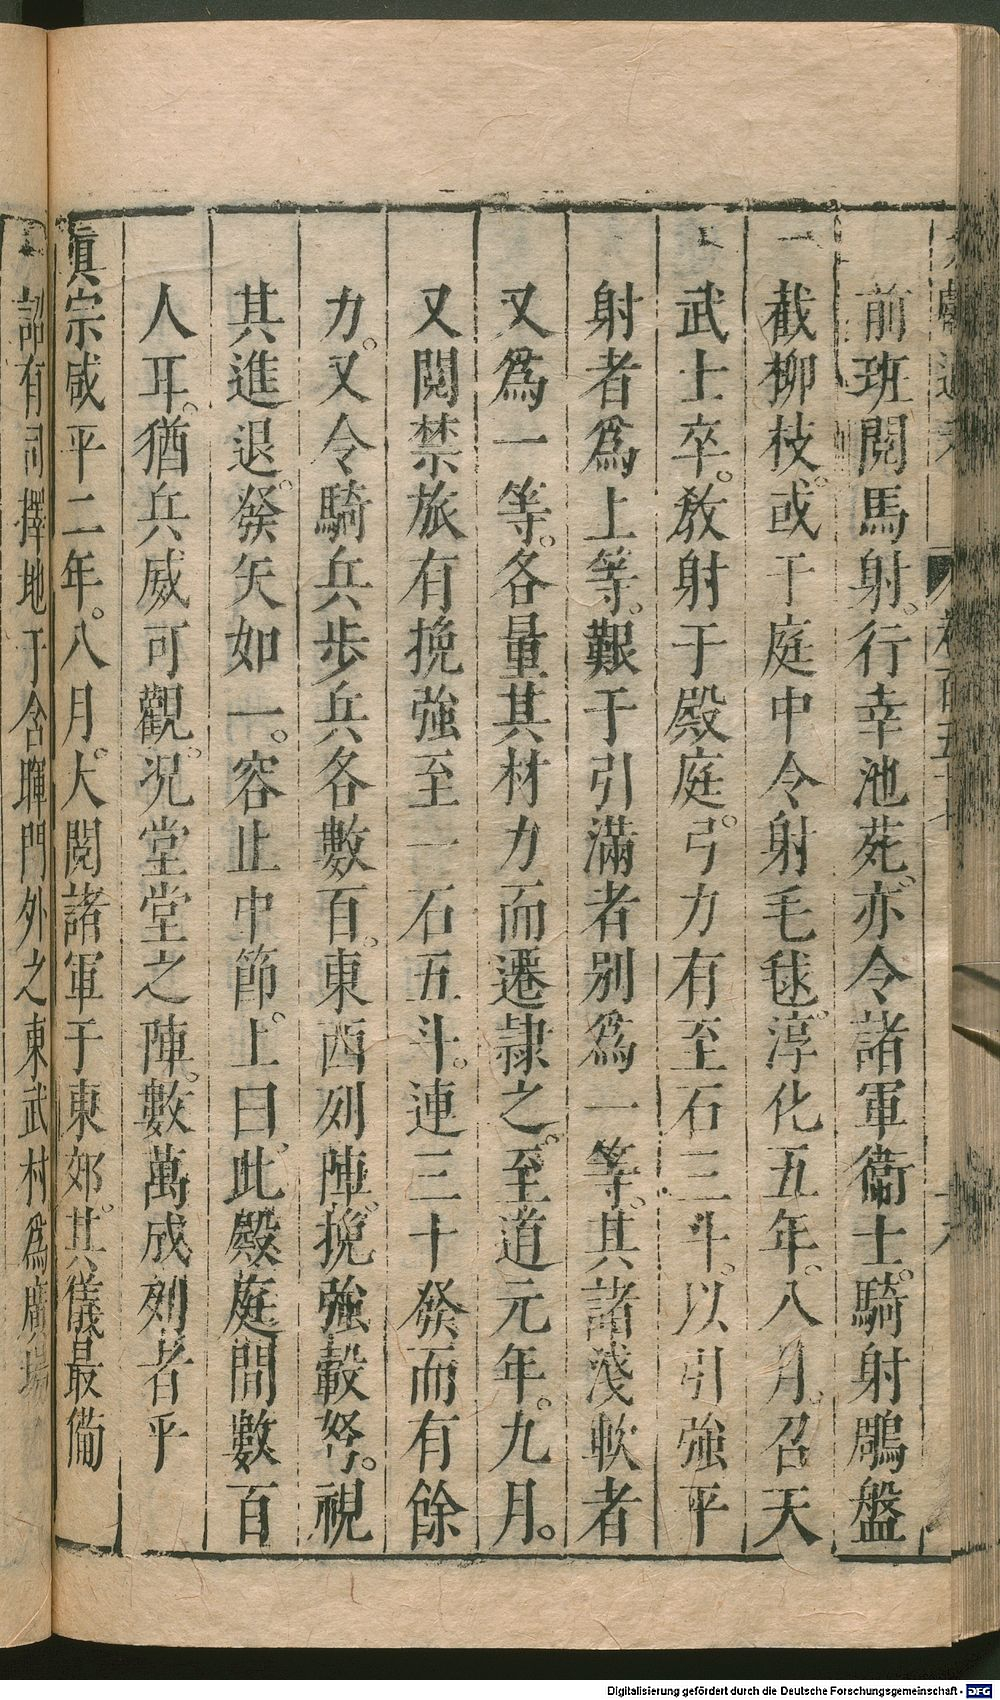 文獻通考 卷百五十七 十六
前班閱馬射。行幸池苑。亦令諸軍衞士。騎射鵰盤
截柳枝。或于庭中令射毛毬。淳化五年。八月。召天
武士卒。敎射于殿庭。弓力有至石三斗。以引強平
射者爲上等。艱于引滿者別爲一等。其諸淺軟者
又爲一等。各量其材力而遷隷之。至道元年。九月。
又閱禁旅有挽強至一石五斗。連三十發而有餘
力。又令騎兵步兵各數百。東西列陣。挽強彀弩。視
其進退。發矢如一。容止中節。上曰。此殿庭間數百
人耳。猶兵威可觀。況堂堂之陣。數萬成列者乎
眞宗咸平二年。八月。大閱諸軍于東郊。其儀最備
詔有司擇地于含暉門外之東武村爲廣場
Digitalisierung gefördert durch die Deutsche Forschungsgemeinschaft - DFG